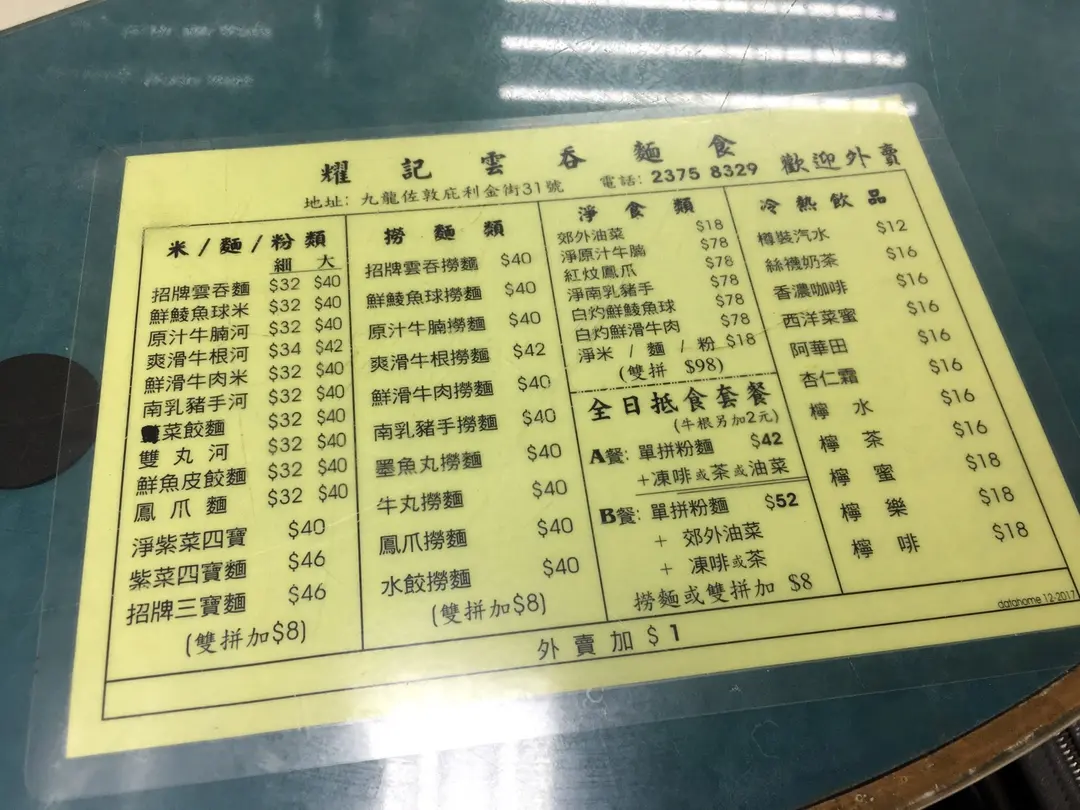 耀記雲吞麵食
地址: 九龍佐敦庇利金街31號 電話: 2375 8329 歡迎外賣
米/麵/粉類
細 大
招牌雲吞麵 $32 $40
鮮鯪魚球米 $32 $40
原汁牛腩河 $32 $40
爽滑牛根河 $34 $42
鮮滑牛肉米 $32 $40
南乳豬手河 $32 $40
菜餃麵 $32 $40
雙丸河 $32 $40
鮮魚皮餃麵 $32 $40
鳳爪麵 $32 $40
淨紫菜四寶 $40
紫菜四寶麵 $46
招牌三寶麵 $46
(雙拼加$8)
撈麵類
招牌雲吞撈麵 $40
鮮鯪魚球撈麵 $40
原汁牛腩撈麵 $40
爽滑牛根撈麵 $42
鮮滑牛肉撈麵 $40
南乳豬手撈麵 $40
墨魚丸撈麵 $40
牛丸撈麵 $40
鳳爪撈麵 $40
水餃撈麵 $40
(雙拼加$8)
淨食類
郊外油菜 $18
淨原汁牛腩 $78
紅炆鳳爪 $78
淨南乳豬手 $78
白灼鮮鯪魚球 $78
白灼鮮滑牛肉 $78
淨米 / 麵 / 粉 $18
(雙拼 $98)
全日抵食套餐
(牛根另加2元)
A餐: 單拼粉麵 $42
+凍啡或茶或油菜
B餐: 單拼粉麵 $52
+ 郊外油菜
+ 凍啡或茶
撈麵或雙拼加 $8
冷熱飲品
樽裝汽水 $12
絲襪奶茶 $16
香濃咖啡 $16
西洋菜蜜 $16
阿華田 $16
杏仁霜 $16
檸水 $16
檸茶 $16
檸蜜 $18
檸樂 $18
檸啡 $18
datahome 12-2017
外賣加 $ 1